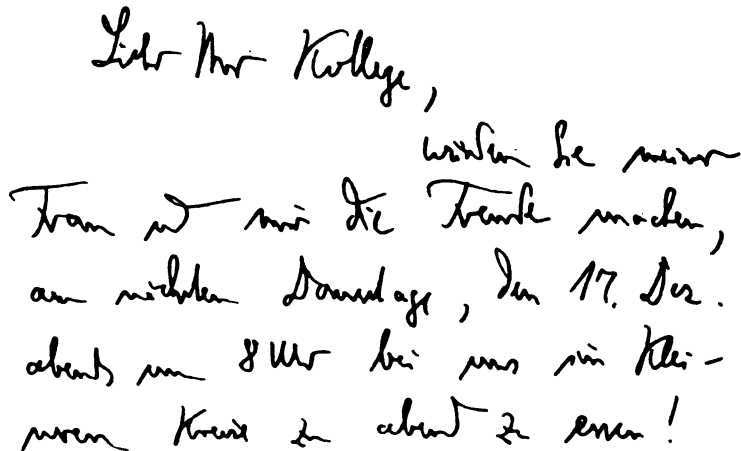 Lieber Herr Kollege,
würden Sie meiner
Frau und mir die Freude machen,
am nächsten Donnerstage, den 17. Dez.
abends um 8 Uhr bei uns im Klei-
neren Kreise zu abend zu essen!